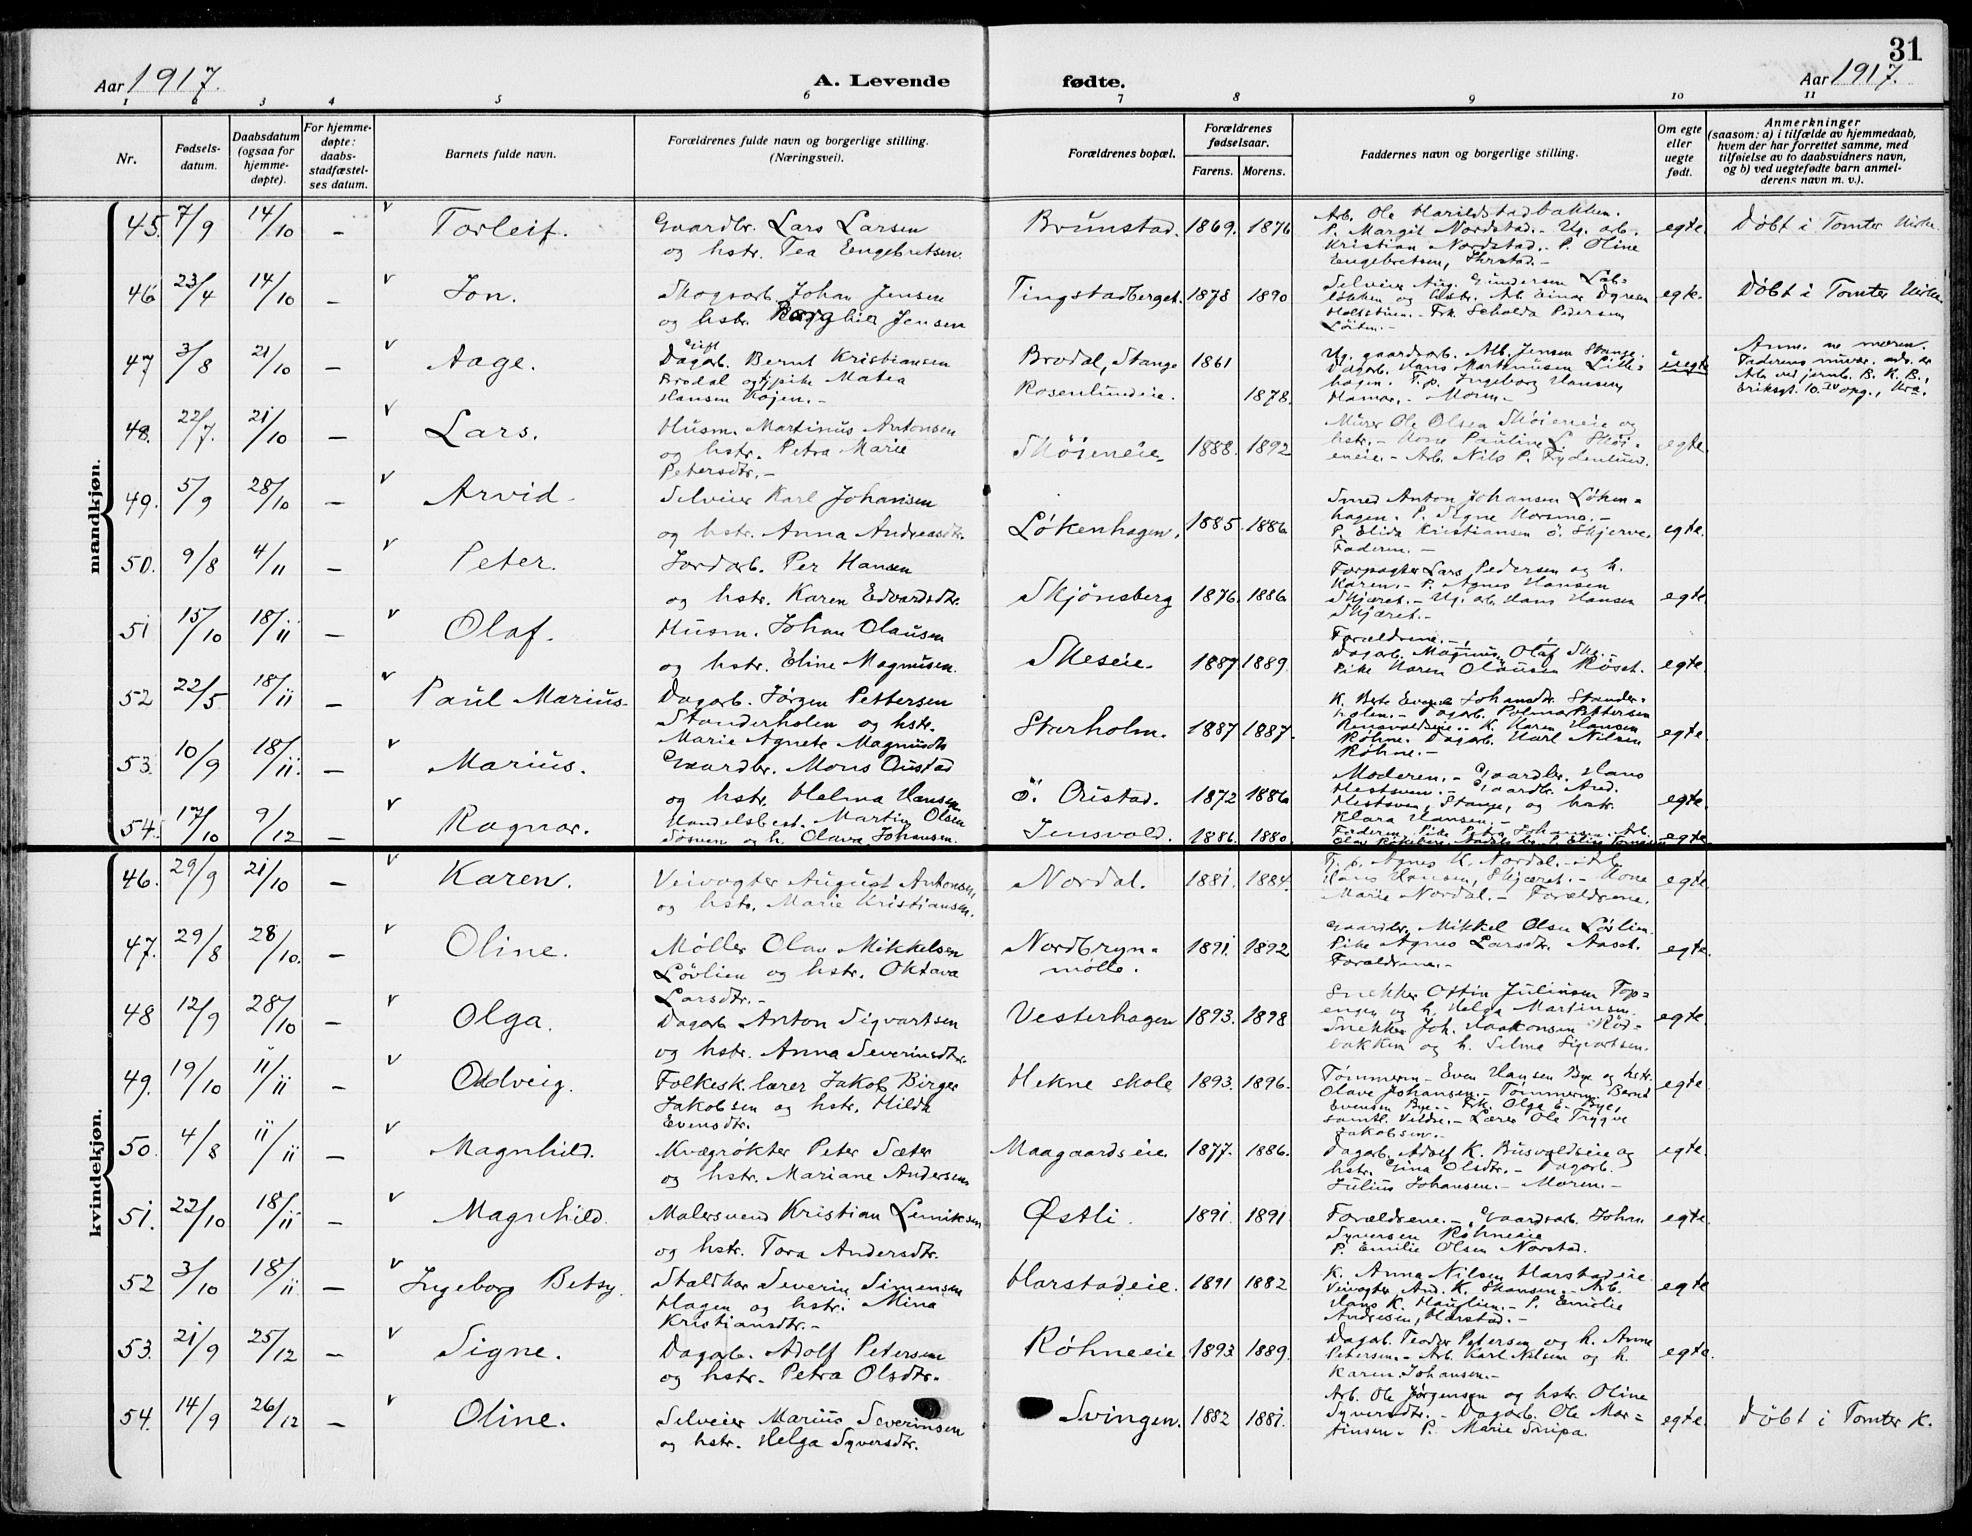 31
Aar 1917. A. Levende fødte. Aar 1917.
1 2 3 4 5 6 7 8 9 10 11
Nr.
Fødsels-
datum.
Daabsdatum
(ogsaa for
hjemme-
døpte).
For hjemme-
døpte:
daabs-
stadfæstel-
ses datum.
Barnets fulde navn.
Forældrenes fulde navn og borgerlige stilling.
(Næringsvei).
Forældrenes bopæl.
Forældrenes
fødselsaar.
Farens. Morens.
Faddernes navn og borgerlige stilling.
Om egte
eller
uegte
født.
Anmerkninger
(saasom: a) i tilfælde av hjemmedaab,
hvem der har forrettet samme, med
tilføielse av to daabsvidners navn,
og b) ved uegtefødte barn anmel-
derens navn m. v.).
mandkjøn.
45. 7/9 14/10 – Torleif. Gaardbr. Lars Larsen Brunstad. 1869. 1876 egte. Døbt i Tomter Kirke
og hstr. Tea Engebretsen.
Arb. Ole Harildstadbakken.
P. Margit Nordstad. - Ug. arb.
Kristian Nordstad. P. Oline
Engebretsen,
46 23/4 14/10 – Jon. Skogsarb. Johan Jensen Tingstadberget. 1878 1890 egte. Døbt i Tomter Kirke
og hstr. Jensen
47 3/8 21/10 – Aage. Dagarb. Bernt Kristiansen Brodal, Stange 1861 uegte
Brodal og pike Matea Rosenlundeie. 1878.
Hansen Kojen. -
Ug. gaardsarb. Alb. Jensen Stange.
Dagarb. Hans Martinusen Lille-
hagen. F. p. Ingeborg Hansen,
Hamar. - Moren. -
Anm. av moren.
48. 22/7. 21/10 – Lars. Husm. Martinus Antonsen Skøieneie 1888. 1892 egte.
og hstr. Petra Marie
Petersdtr. -
Murer Ole Olsen Skøieneie og
hstr. - Kone Pauline L. Skøi-
eneie. - Arb. Nils P. Frydenlund.
49. 5/9 28/10 – Arvid. Selveier Karl Johansen Løkenhagen. 1885. 1886 egte.
og hstr. Anna Andreasdtr.
Smed Anton Johansen Løken-
hagen. P. Signe Horsmo. -
P. Elida Kristiansen ö. Skjerve.
Faderen. -
50. 9/8 4/11 – Peter. Jordarb. Per Hansen Skjönsberg 1876. 1886 egte.
og hstr. Karen Edvardsdtr.
Forpagter Lars Pedersen og h.
Karen. - P. Agnes Hansen
Skjæret. - Ug. arb. Hans Hansen
Skjæret. -
51 15/10 18/11 – Olaf. Husm. Johan Olausen Skeseie. 1887 1889. egte.
og hstr. Eline Magnusen.
Forældrene. -
52 22/5 18/11 – Paul Marius. Dagarb. Jørgen Pettersen Storholm. 1887 1887. egte.
Stenderholen og hstr.
Marie Agnete Magnusdtr.
53. 10/9 18/11. – Marius. Gaardbr. Mons Oustad ö. Oustad. 1872 1886 egte.
og hstr. Helma Hansen.
Moderen. - Gaardbr. Hans
Hestsven. - Gaardbr. And.
Hestsven, Stange, og hstr.
Klara Hansen. -
54. 17/10 9/12 – Ragnar. Handelsbest. Martin Olsen Jensvold. 1886. 1880. egte.
og h. Olava Johansen.
kvindekjøn.
46. 29/9 21/10 – Karen. Veivogter August Antonsen Nordal. 1881. 1884. egte.
og hstr. Marie Kristiansen.
F. p. Agnes K. Nordal. - Arb.
Hans Hansen, Skjæret. - Kone
Marie Nordal. - Forældrene.
47. 29/8 28/10. – Oline. Møller Olav Mikkelsen Nordbryn- 1891. 1892 egte.
Løvlien og hstr. Oktava mølle.
Larsdtr. -
Gaardbr. Mikkel Olsen Løvlien.
Pike Agnes Larsdtr. Aaset.
Forældrene. -
48 12/9 28/10 – Olga. Dagarb Anton Sigvartsen Vesterhagen 1893. 1898 egte.
og hstr. Anna Severinsdtr.
Snekker Ottin Julinsen Top-
engen og h. Helga Martinsen.
Snekker Joh. Haakonsen Rød-
bakken og h. Selma Sigvartsen.
49. 19/10 11/11 – Oddveig. Folkesk. lærer Jakob Birger Hekne skole 1893. 1896. egte.
Jakobsen og hstr. Hilda
Evensdtr.
Tømmerm. Even Hansen Bye og hstr.
Olave Johansen. - Tømmerm. Bernt
Evensen Bye. - Frk. Olga E. Bye,
samtl. Veldre. - Lærer Ole Trygve
Jakobsen. -
50. 4/8 11/11 – Magnhild. Kvægrøkter Peter Sæter Maagaardseie 1877. 1886. egte.
og hstr. Mariane Andersen
Dagarb. Adolf K. Busvoldseie og
hstr. Gina Olsdtr. - Dagarb.
Julius Johansen. - Moren. -
51. 22/10 18/11 – Magnhild. Malersvend Kristian Lemiksen Østli. 1891. 1891 egte.
og hstr. Tora Andersdtr.
Forældrene. - Gaardsarb. Johan
Syversen Røhneeie
P. Emilie Olsen Norstad.
52 3/10 18/11 – Ingeborg Betsy. Staldkar Severin Simensen Harstadeie. 1891 1882 egte
Hagen og hstr. Mina
Kristiansdtr. -
K. Anna Nilsen Harstadeie
Veivogter And. K. Stensen. - Arb.
Hans K. Hauglien. - P. Emilie
Andresen, Harstad. -
53. 21/9 25/12 – Signe. Dagarb. Adolf Petersen Røhneeie 1893 1889. egte.
og hstr. Petra Olsdtr.
Dagarb. Teodor Petersen og h. Anne
Petersen. - Arb. Karl Nilsen og h.
Karen Johansen. -
54. 14/9 26/12 – Oline. Selveier Marius Severinsen Svingen. 1882 1881. egte Døbt i Tomter K.
og hstr. Helga Syversdtr.
Arb. Ole Jørgensen og hstr. Oline
Syversdtr. - Dagarb. Ole Mar-
tinsen. P. Marie Snipa.